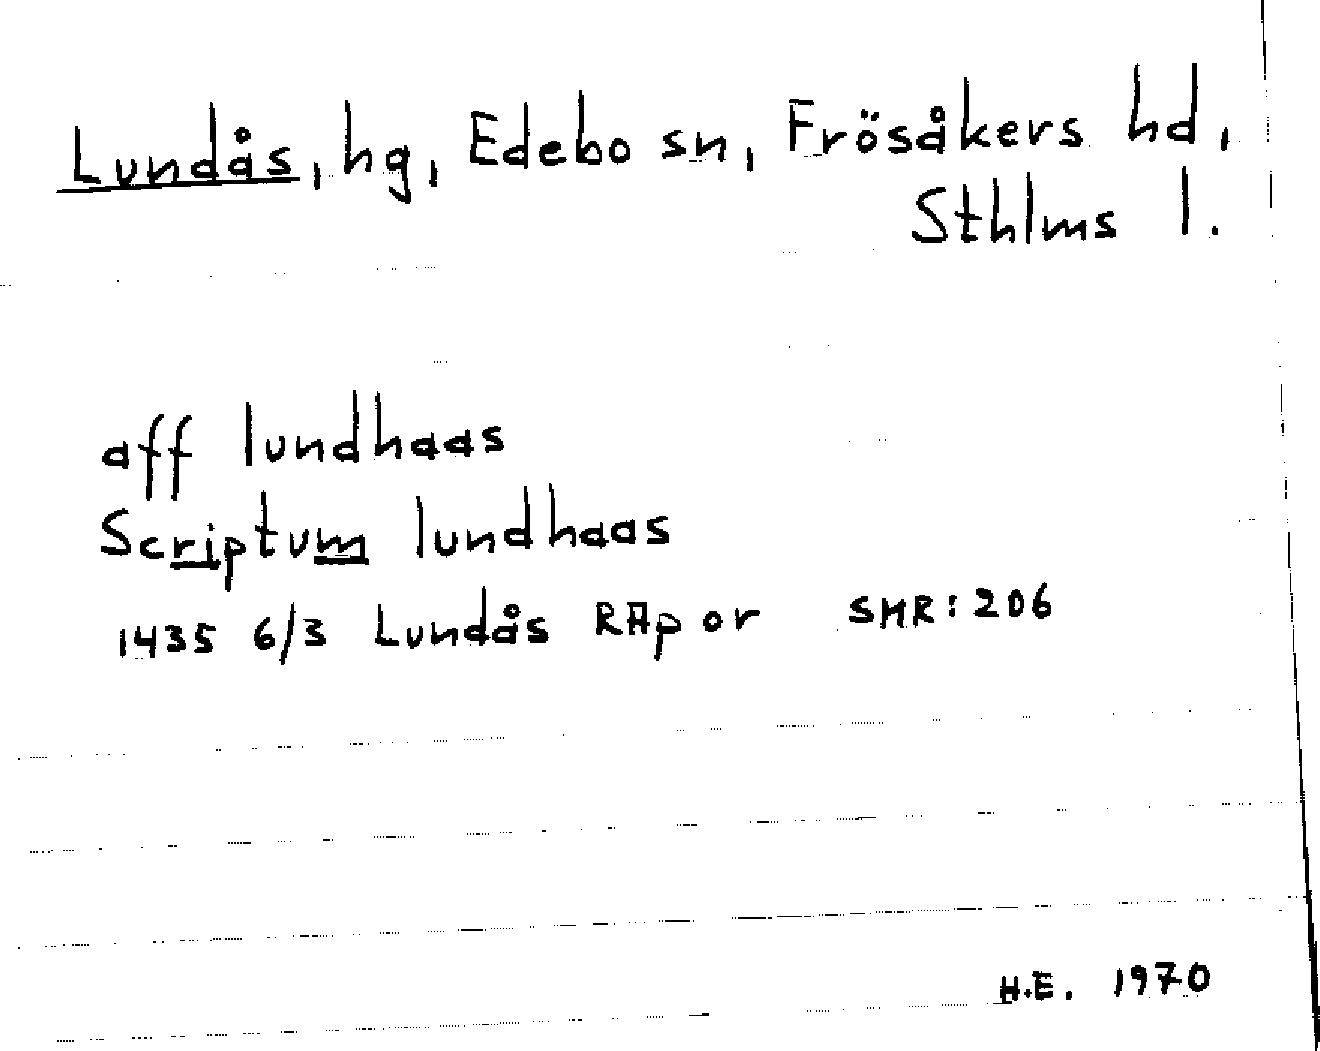 Lundås, hg, Edebo sn, Frösåkers hd,
Sthlms l.
aff lundhaas
Scriptum lundhaas
1435 6/3 Lundås RAp or SMR:206
H.E. 1970